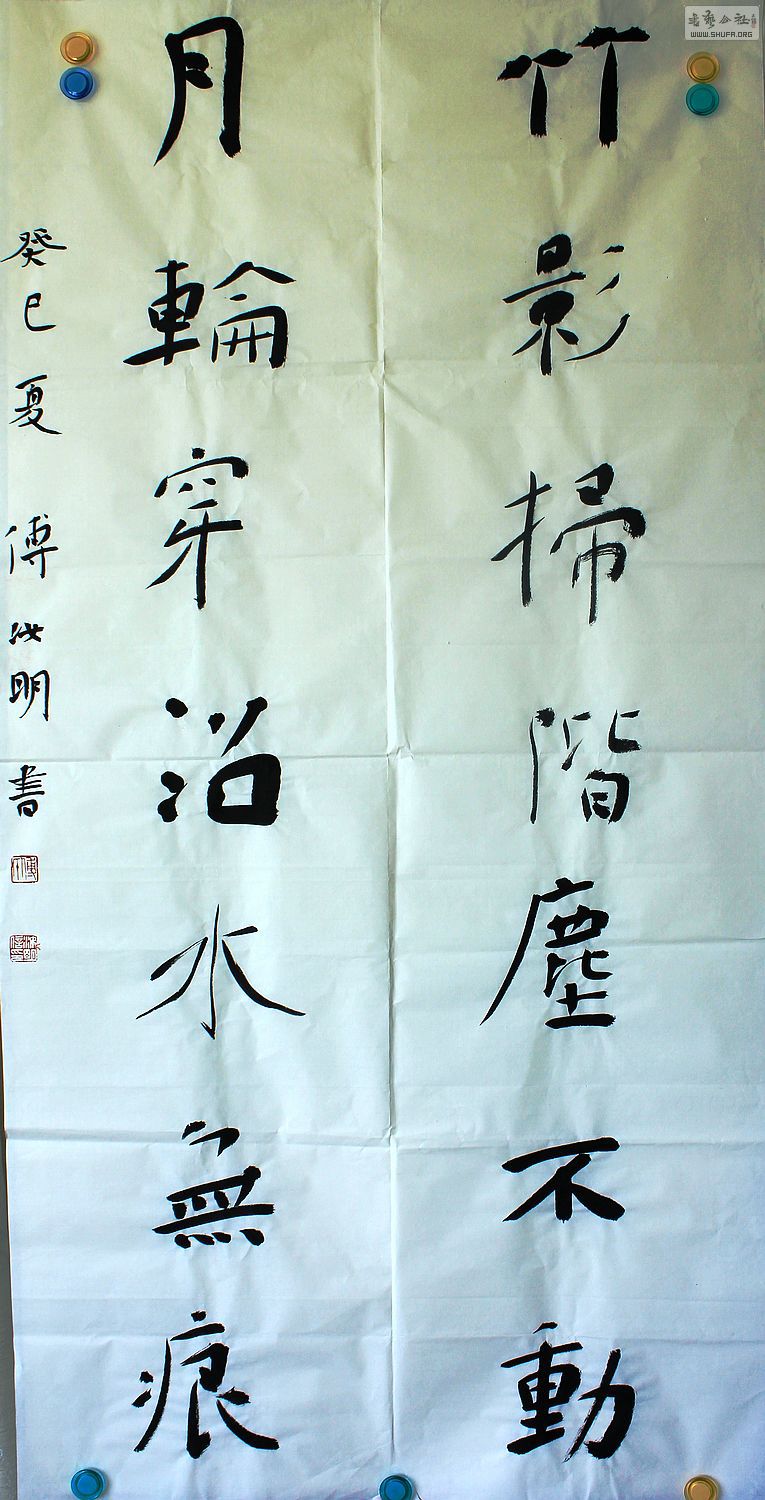 竹影掃階塵不動
月輪穿沼水無痕
癸巳夏 傅汝明書
书藝公社
WWW.SHUFA.ORG